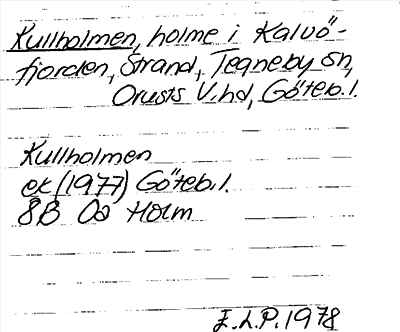 Kullholmen, holme i Kalvö-
fjorden, Strand, Tegneby sn,
Orusts V. hd, Göteb. l.
Kullholmen
ek (1977) Göteb. l.
8B 0a Holm
E.L.P. 1978